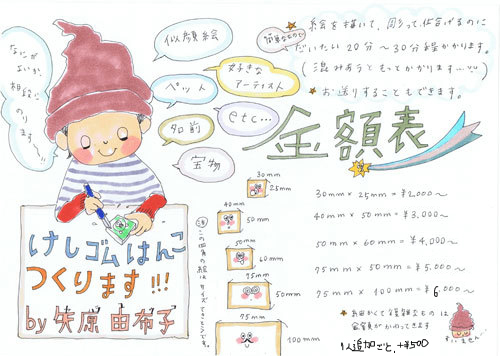 なにが
よいか、
相談に
のります〜!!
似顔絵
ペット
名前
宝物
好きな
アーティスト
etc...
簡単なもの
絵を描いて、彫って、仕上げるのに
だいたい20分〜30分程かかります。
(混みあうともっとかかります...)
お送りすることもできます。
金額表
30mm
25mm
40mm
50mm
50mm
60mm
75mm
50mm
75mm
100mm
30mm × 25mm = ¥2,000〜
40mm × 50mm = ¥3,000〜
50mm × 60mm = ¥4,000〜
75mm × 50mm = ¥5,000〜
75mm × 100mm = ¥6,000〜
この四角の絵はサイズてきとうです。
けしゴムはんこ
つくります!!!
by 矢原 由布子
金額がかわってきます
すいません...
1人追加ごと、+¥500